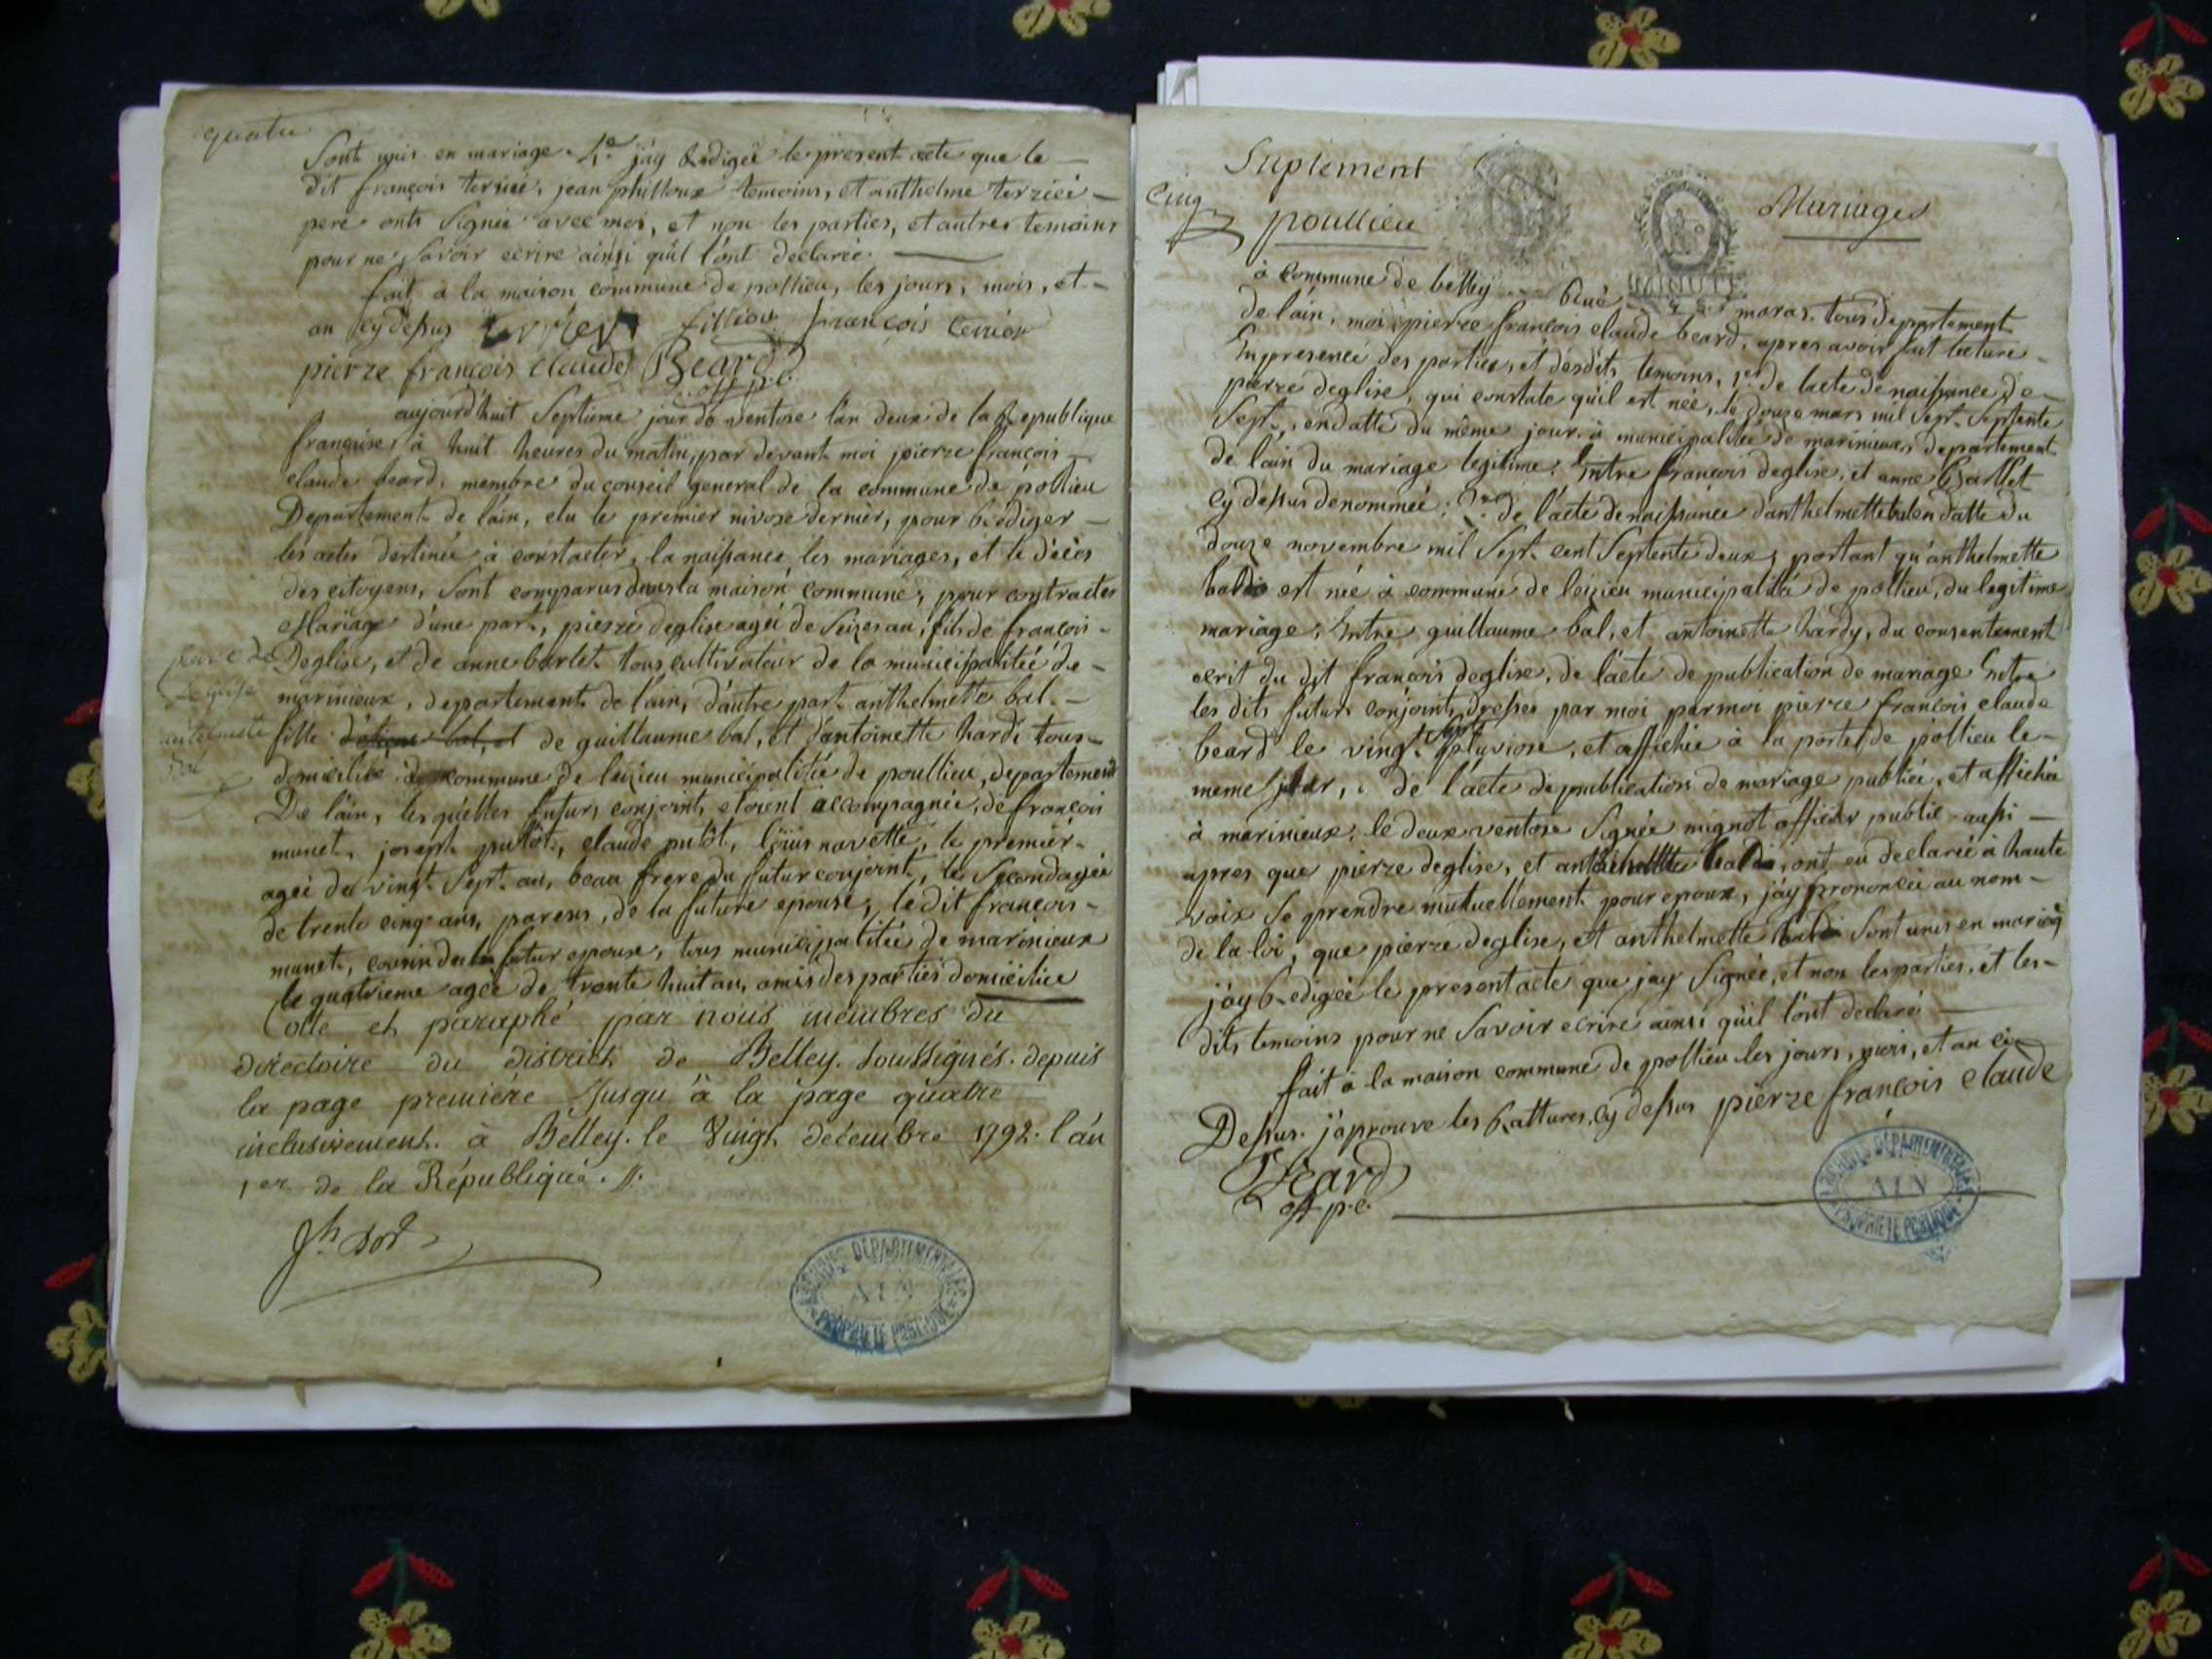 quatre
Sont unis en mariage. 4.e j'ay Redigée le present acte que le
dit françois terrier, jean philloux temoins, et anthelme terrier
pere onts Signée avec moi, et non les parties, et autres temoins
pour ne Savoir ecrire ainsi qu'il l'ont declarée.
fait à la maison commune de pollieu, les jours, mois, et
an cy dessus françois terrier
pierre françois claude Beard
off. p.c.
aujourd'huit Septieme jour de ventose l'an deux de la Republique
française, à huit heures du matin, par devant moi pierre françois
claude beard, membre du conseil general de la commune de pollieu
Departement de l'ain, elu le premier nivose dernier, pour Rediger
les actes destinée à constater, la naissance, les mariages, et le décès
des citoyens, Sont comparus dans la maison commune, pour contracter
Mariage d'une part, pierre deglise agéé de Seizes an, fils de françois
Deglise, et de anne barlet tous cultivateur de la municipalitéé de
marinieux, departement de l'ain, d'autre part anthelmette bal
fille d'etiene bal, et de guillaume bal, et d'antoinette hardi tous
domicilié à commune de leizieu municipalitée de poullieu, departement
De l'ain, les quelles futurs conjoints etoient accompagnée, de françois
munet, joseph putot, claude putôt, loüis navette, le premier
agéé de vingt Sept an, beau frere du futur conjoint, le Second agéé
de trente cinq ans, parens, de la future epouse, le dit françois
munet, cousin de la futur epouse, tous municipalitée de marinieux
le quatrieme agéé de trente huit an, amis des parties domicilié
deglise
bal
Cotte et paraphé par nous membres du
directoire du district de Belley. soussignés. depuis
la page premiére Jusqu'à la page quatre
inclusivement. à Belley. le Vingt decembre 1792. l'an
1.er de la République.
ARCHIVES DÉPARTEMENTALES
AIN
PROPRIÉTÉ PUBLIQUE
Suplement
Cinq
poullieu
Mariages
à commune de belley Rue maras. tous departement
de l'ain, moi pierre françois claude beard, apres avoir fait lecture
En presence des parties, et desdits temoins, 1.er de lacte de naissance de
pierre deglise, qui constate qu'il est née, le douze mars mil Sept Septente
Sept, en datte du même jour à municipalitée de marinieux, departement
de l'ain du mariage legitime: Entre françois deglise, et anne Barllet
cy dessus denommée; 2.e de l'acte de naissance d'anthelmette bal en datte du
douze novembre mil Sept cent Septente deux, portant qu'anthelmette
bal est née à commune de leizieu municipalité de pollieu, du legitime
mariage, Entre guillaume bal, et antoinette hardy, du consentement
ecrit du dit françois deglise, de l'acte de publication de mariage Entre
les dits futurs conjoints, dresses par moi parmoi pierre françois claude
beard le vingt sept pluviose, et affichée à la porte de pollieu le
meme jour, de l'acte de publication de mariage publiée, et affichée
à marinieux, le deux ventose Signée mignot officier public aussi
apres que pierre deglise, et anthelmette bal, ont eu declarée à haute
voix Se prendre mutuellement pour epoux, j'ay prononcée au nom
de la loi, que pierre deglise, et anthelmette bal Sont unis en mariag
j'ay Redigée le present acte que jay Signée, et non les parties, et les
dits temoins pour ne Savoir ecrire ainsi qu'il l'ont declaré
fait à la maison commune de pollieu les jours, mois, et an cy
Dessus. j'aprouve les Rattures, cy dessus pierre françois claude
Beard
off. p.c.
ARCHIVES DÉPARTEMENTALES
AIN
PROPRIÉTÉ PUBLIQUE